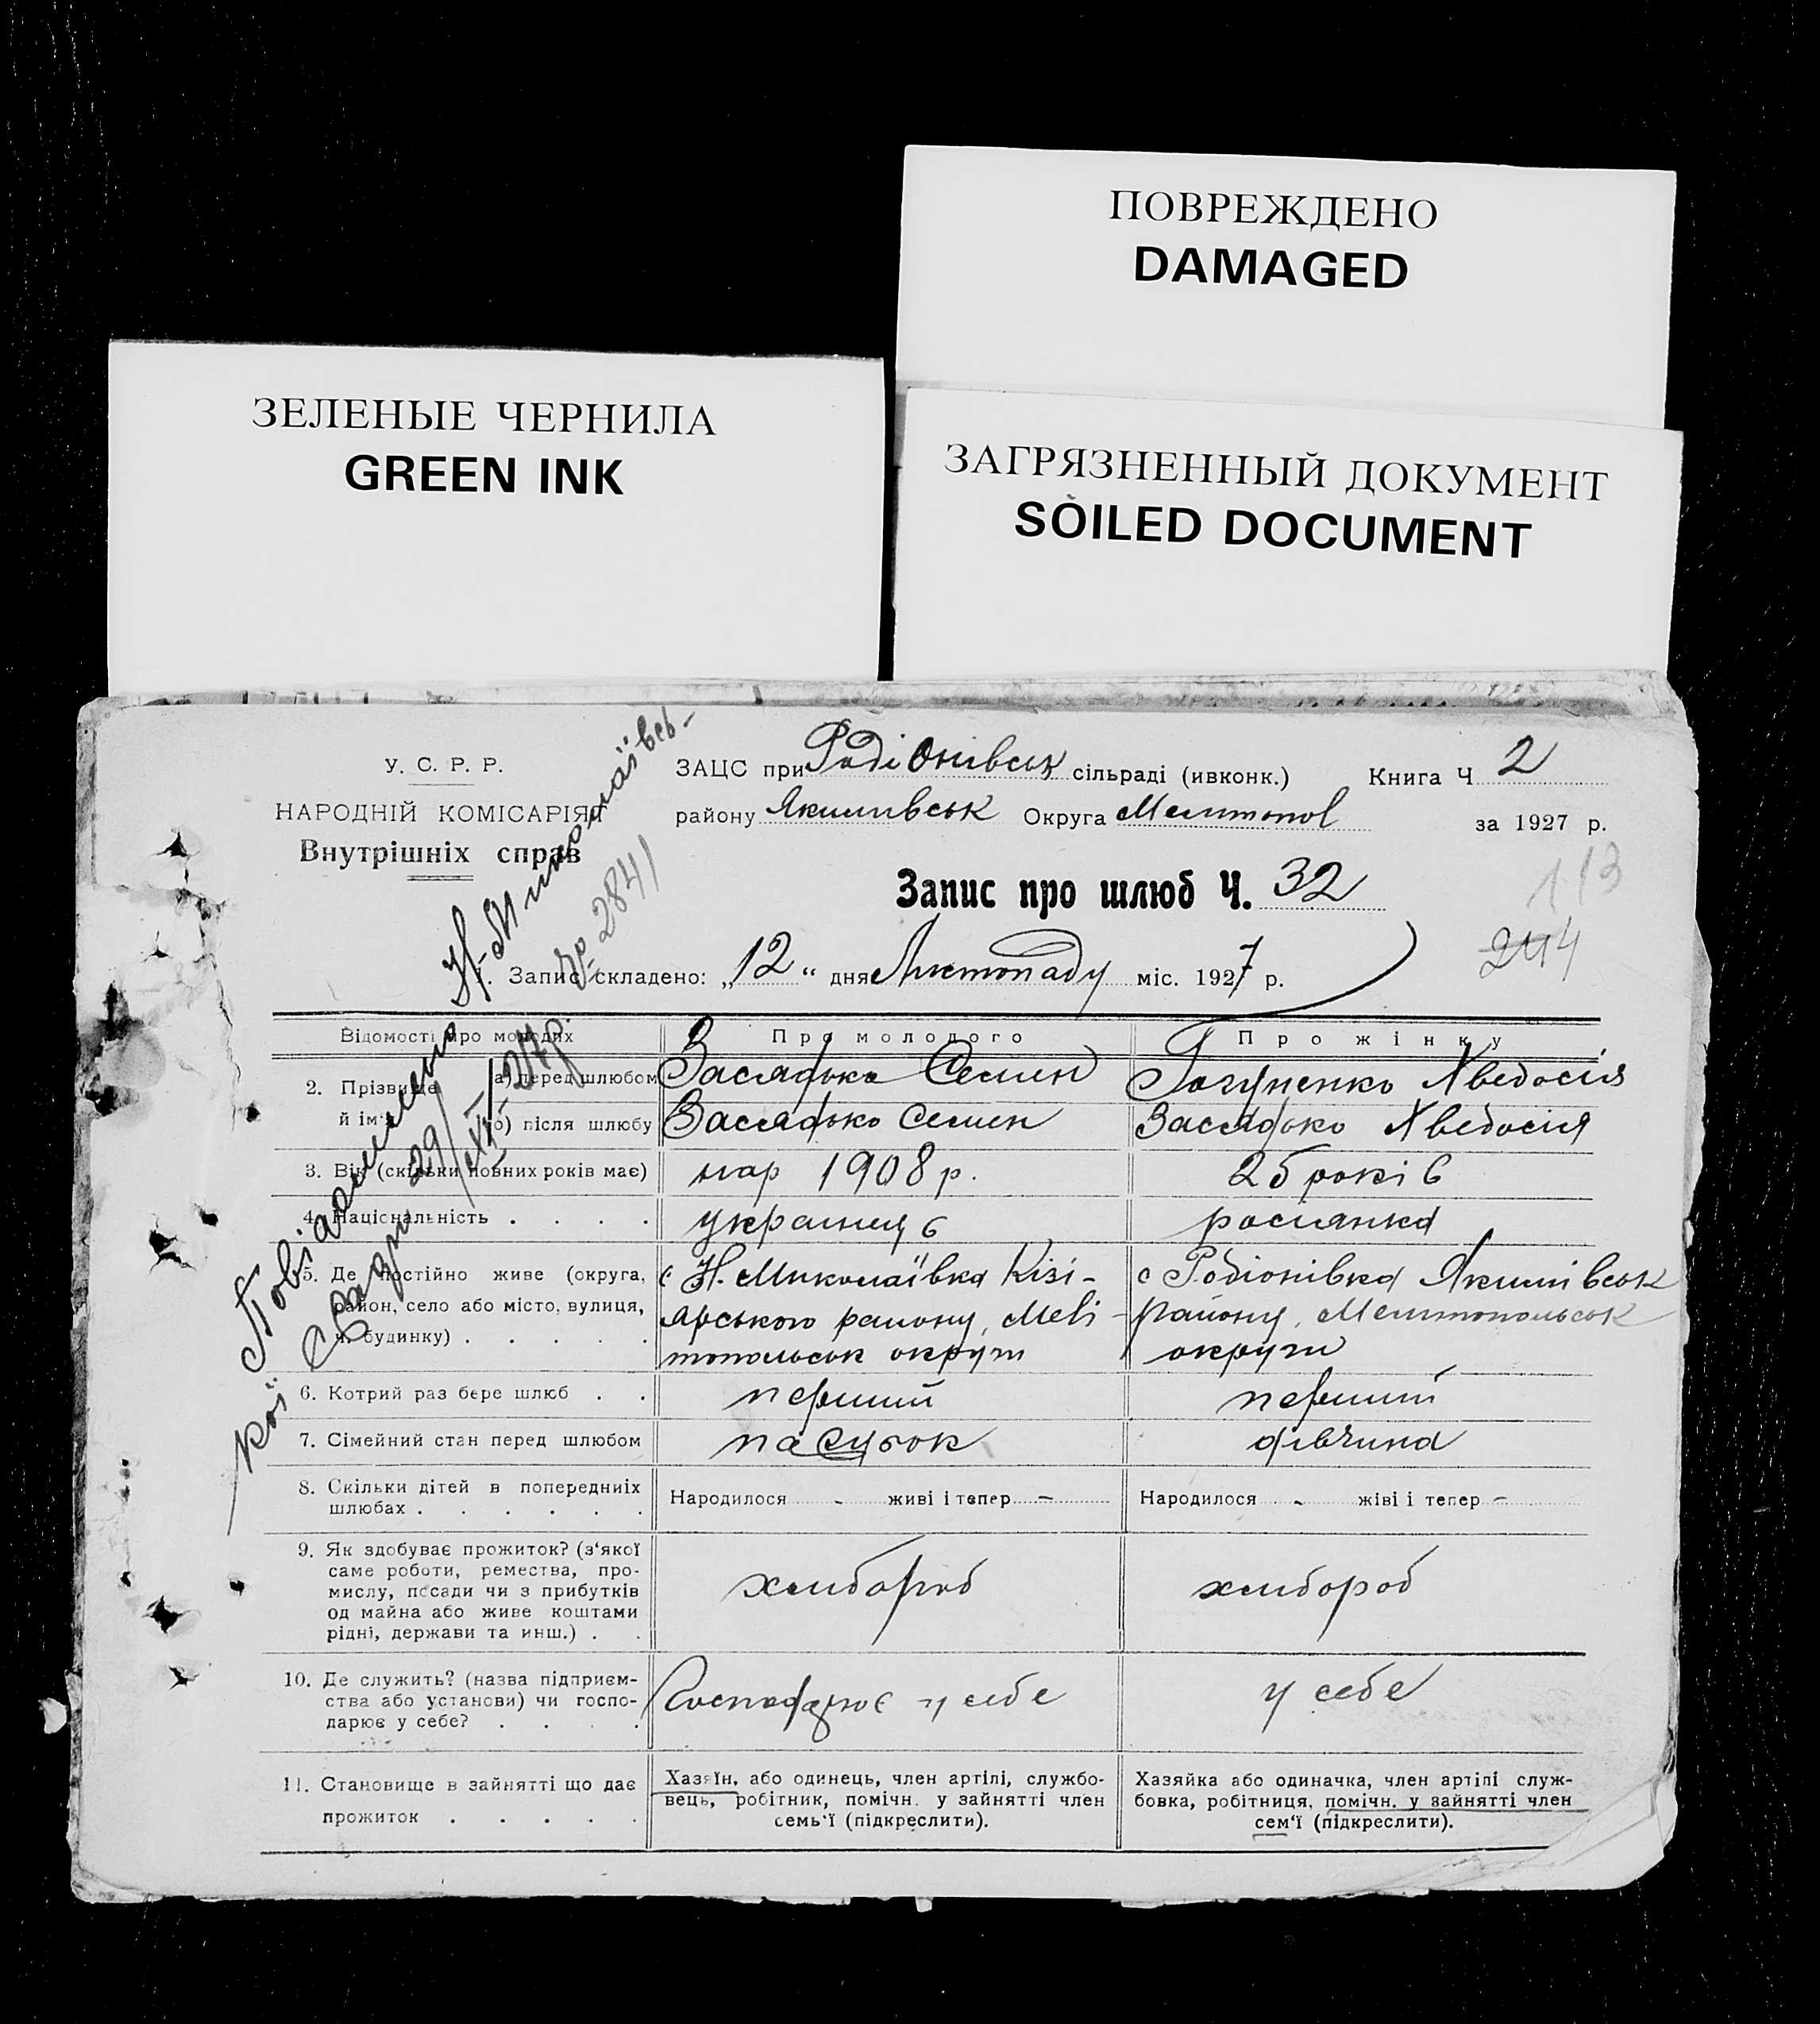 ПОВРЕЖДЕНО
DAMAGED
ЗЕЛЕНЫЕ ЧЕРНИЛА
GREEN INK
ЗАГРЯЗНЕННЫЙ ДОКУМЕНТ
SOILED DOCUMENT
У. С. Р. Р.
НАРОДНІЙ КОМІСАРІЯТ
Внутрішніх справ
ЗАЦС при Радіонівськ сільраді (ивконк.) Книга Ч 2
району Якимівськ Округа Мелитопол за 1927 р.
Запис про шлюб Ч. 32
113
244
1. Запис складено: „12“ дня Листопаду міс. 1927 р.
Н-Миколаївсь-
№ 2841
Повідомлено
кої
29/XI-27р.
Відомості про молодих Про молодого Про жінку
2. Прізвище й ім'я а) перед шлюбом Заслядько Семен Гогуненко Хведосія
б) після шлюбу Заслядько Семен Заслядько Хведосія
3. Вік (скільки повних років має) нар 1908 р. 25 років
4. Національність . . . . украинця росиянка
5. Де постійно живе (округа, район, село або місто, вулиця, ч. будинку) . . . . .
с Н. Миколаївка Кізі-
ярського району, Мелі-
топольськ округи
с Родіонівка Якимівськ
району, Мелитопольськ
округи
6. Котрий раз бере шлюб . . перший перший
7. Сімейний стан перед шлюбом парубок дівчина
8. Скільки дітей в попередниіх шлюбах . . . . . . Народилося - живі і тепер - Народилося - жіві і тепер -
9. Як здобуває прожиток? (з'якої
саме роботи, ремества, про-
мислу, посади чи з прибутків
од майна або живе коштами
рідні, держави та инш.) . .
хлибороб хлибороб
10. Де служить? (назва підприєм-
ства або установи) чи госпо-
дарює у себе? . . . .
Господарює у себе у себе
11. Становище в зайнятті що дає
прожиток . . . . .
Хазяїн, або одинець, член артілі, службо-
вець, робітник, помічн. у зайнятті член
семь'ї (підкреслити).
Хазяйка або одиначка, член артілі служ-
бовка, робітниця, помічн. у зайнятті член
сем'ї (підкреслити).